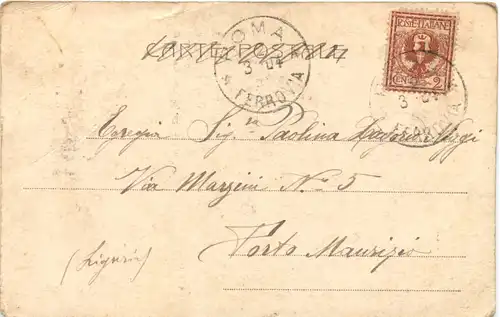 CARTE POSTALE
ROMA
3 04
FERROVIA
POSTE ITALIANE
2
3 04
FERROVIA
Egregia Sig. Paolina
Via Mazzini No. 5
Porto Maurizio
(Liguria)